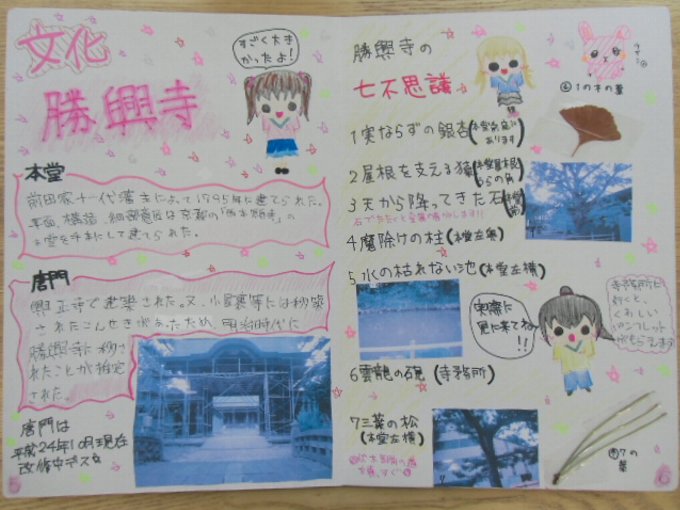 文化
勝興寺
すごく大き
かったよ!
本堂
前田家十一代藩主によって1795年に建てられた。
平面、構造、細部意匠は京都の「西本願寺」の
本堂を手本にして建てられた。
唐門
興正寺で建築された。又、小屋裏等には移築
されたこんせきがあったため、明治時代に
勝興寺に移さ
れたことが推定
された。
唐門は
平成24年10月現在
改修中デス
勝興寺の
七不思議
1実ならずの銀杏(本堂前庭に
あります)
2屋根を支える猿(本堂屋根
うらの角)
3天から降ってきた石(本堂
前)
石でたたくと金属の音がします!!
4魔除けの柱(本堂左奥)
5水の枯れない池(本堂左横)
6雲龍の硯(寺務所)
7三葉の松
(本堂左横)
1の木の葉
実際に
見に来てね
!!
寺務所に
行くと、
くわしい
パンフレット
がもらえます
7の
葉